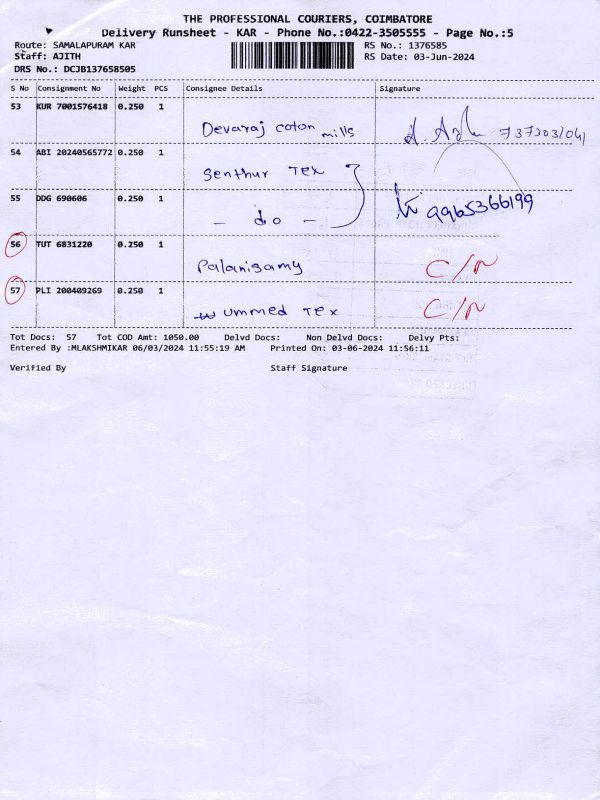 THE PROFESSIONAL COURIERS, COIMBATORE
Delivery Runsheet - KAR - Phone No.:0422-3505555 - Page No.:5
Route: SAMALAPURAM KAR RS No.: 1376585
Staff: AJITH RS Date: 03-Jun-2024
DRS No.: DCJB137658505
S No Consignment No Weight PCS Consignee Details Signature
53 KUR 7001576418 0.250 1
Devaraj coton mills
54 ABI 20240565772 0.250 1
Senthur Tex
55 DDG 690606 0.250 1
- do - 9965366199
56 TUT 6831220 0.250 1
Palanisamy C/N
57 PLI 200409269 0.250 1
ummed Tex C/N
Tot Docs: 57 Tot COD Amt: 1050.00 Delvd Docs: Non Delvd Docs: Delvy Pts:
Entered By :MLAKSHMIKAR 06/03/2024 11:55:19 AM Printed On: 03-06-2024 11:56:11
Verified By Staff Signature